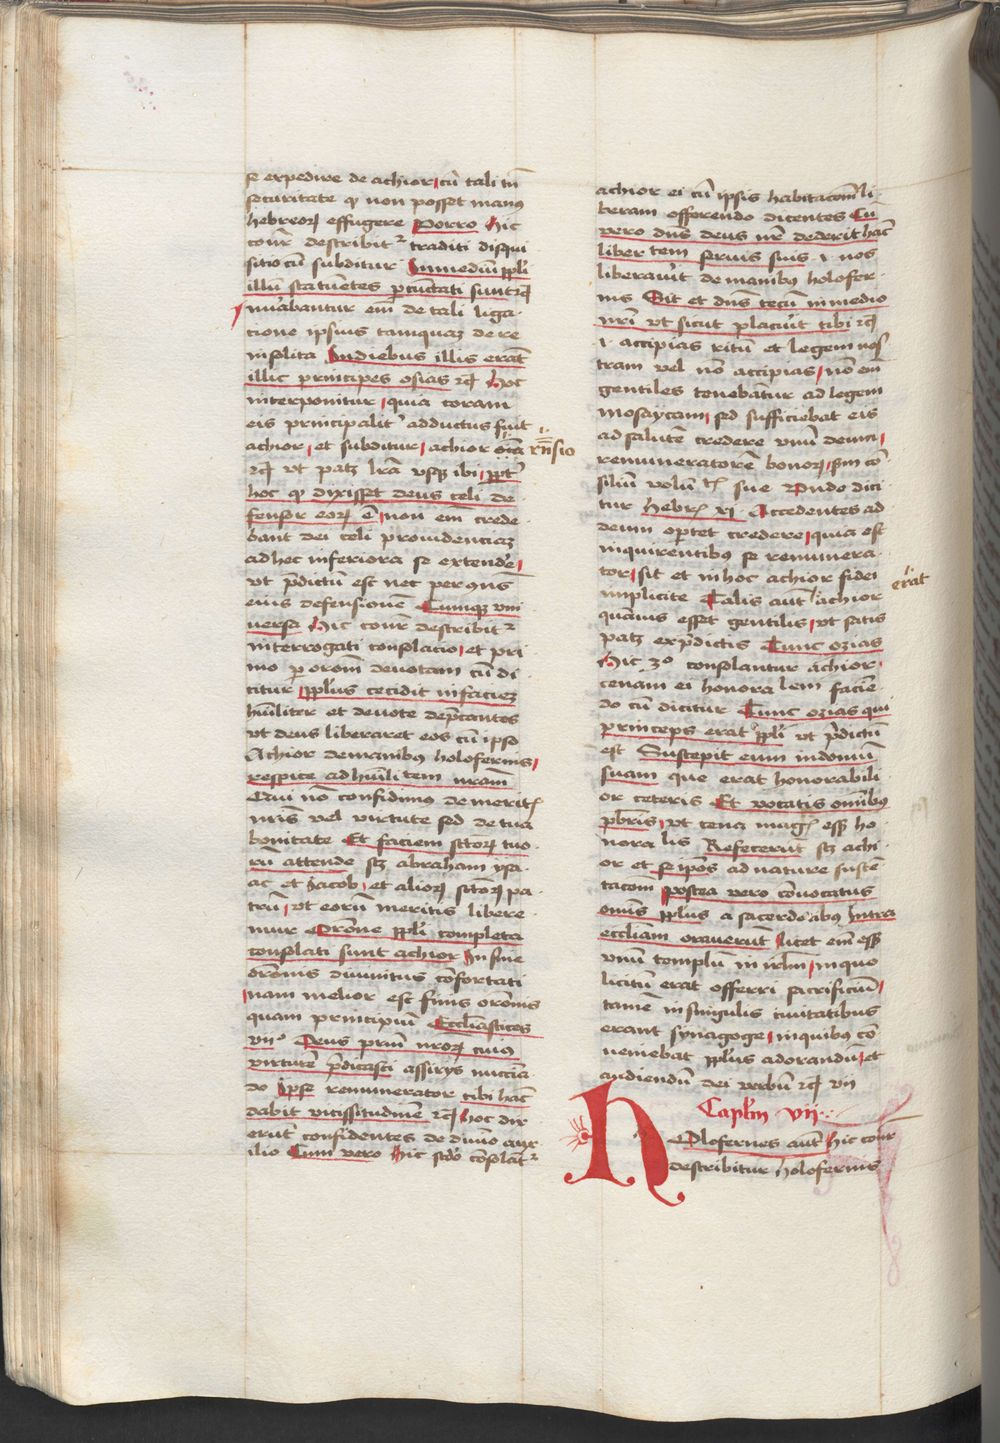 se expedire de achior cū tali tn̄
securitate qͥ non posset manꝰ
hebreoꝝ effugere Porro Hic
cōnr̄ describitᷣ traditi disqui
sitio cū subditur In mediū ppl̓i
illū statuētes ꝑcūctati sunt ⁊cꝫ
mirabantur em̄ de tali liga
cione ipsius tamquaꝫ de re
insolita In diebus illis erāt
illic principes osias ⁊cꝫ Hoc
interponitur quia coram
eis principalitᷣ adductus fuit
achior et subditur achior oīa rn̄sio
⁊cꝫ vt patꝫ lr̄a vsqꝫ ibi ꝓptᷣ
hoc qͥ dixisset deus celi de
fensor eoꝝ ē non em̄ crede
bant dei celi prouidenciaꝫ
ad hec inferiora se extendē
vt p̄dictū est nec per ↄn̄s
eius defensionē Cumqꝫ vni
uersa Hic cōnr̄ describitᷣ
interrogati consolacio et pri
mo ꝑ orōm̄ deuotam cū di
citur ppl̓us cecidit in facieꝫ
hūiliter et deuote dep̄cantes
vt deus liberaret eos cū ipso
Achior de manibus holofernis
respice ad hūilitem nr̄am
Qui nō confidimꝰ de meritꝭ
nr̄is vel virtute sed de tua
bonitate Et faciem sc̄toꝝ tuo
rū attende scꝫ abraham ysa
ac et Jacob et alioꝝ sc̄toꝝ pa
trū vt eorū meritis libere
mur Orōne ppl̓i completa
consolati sunt achior In fine
orōnis diuinitus cōfortati
nam melior est finis orōnis
quam principiū Eccl̓iastices
vii° Deus prim̄ nr̄oꝝ cuiꝰ
virtutē p̄dicasti assirijs nūccia
do Ipse remunerator tibi hāc
dabit vicissitudinē ⁊cꝫ Hoc dix
erūt confidentes de diuīo aux
ilio Cum vero Hic scd̓o cōsolātᷣ
achior ei cū ipsis habitacōm̄ li
beram offerendo dicentes Cū
vero dn̄s deus nr̄ dederit hāc
liber tem seruis suis ⁊ nos
liberauit de manibꝰ holofer
nis Sit et dn̄s tecū in medio
nr̄i vt sicut placuīt tibi ⁊cꝫ
⁊ accipias ritū et legem nos
tram vel nō accipias nō em̄
gentiles tenebātur ad legem
mosaycam sed sufficiebat eis
ad salutē credere vnū deum
remuneratorē bonoꝝ sm̄ cō
siliū volūtꝭ sue Vnde dici
tur hebrꝭ xi Accedentes ad
deum oportet credere quia est
inquirentibꝰ se remunera
tor sit et in hoc achior fidei
implicite Talis aūt achior
erat
quāuis esset gentilis vt satis
patꝫ ex p̄dictis Tunc ozias
Hic 3° consolantur achior
cenam ei honora lem faciē
do cū dicitur Tunc ozias qui
princeps erat ppl̓i vt p̄dictū
est Suscepit eum in domū
suam que erat honorabili
or ceteris Et vocatis om̄ibus
p̄bris vt cena magꝭ esset ho
nora lis Refecerūt scꝫ achi
or et se ip̄os ad nature sustē
tacōm̄ postea vero cōuocatus
omīs ppl̓us a sacerdo abꝰ Intra
eccl̓iam orauerūt Licet em̄ esset
vnū templū in irl̄m in quo
licitū erat offerri sacrificiū
tamē in singulis ciuitatibus
erant synagoge in quibus cō
ueniebat ppl̓us adorandū et
audiendū dei verbū ⁊cꝫ vii
Capl̓m vii
HOlofernes aūt Hic cōnr̄
describitur holofernis